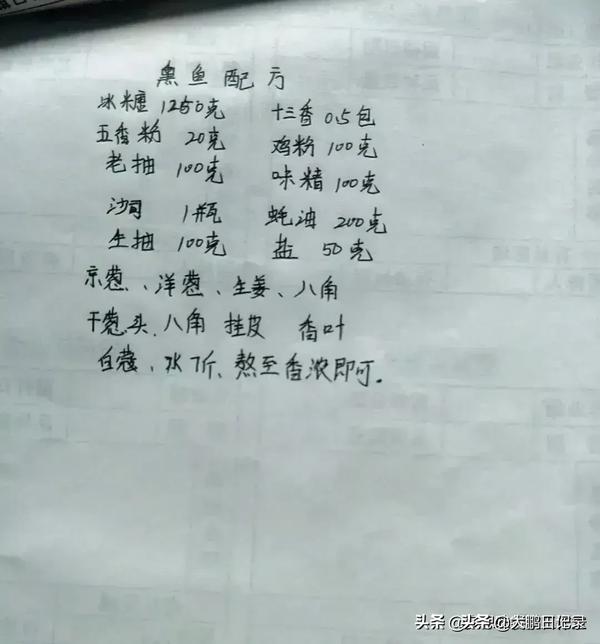 黑鱼配方
冰糖 1250克 十三香 0.5包
五香粉 20克 鸡粉 100克
老抽 100克 味精 100克
沙司 1瓶 蚝油 200克
生抽 100克 盐 50克
京葱、洋葱、生姜、八角
干葱头、八角 桂皮 香叶
白蔻、水7斤、熬至香浓即可。
头条 @头条 @大鹏日记录